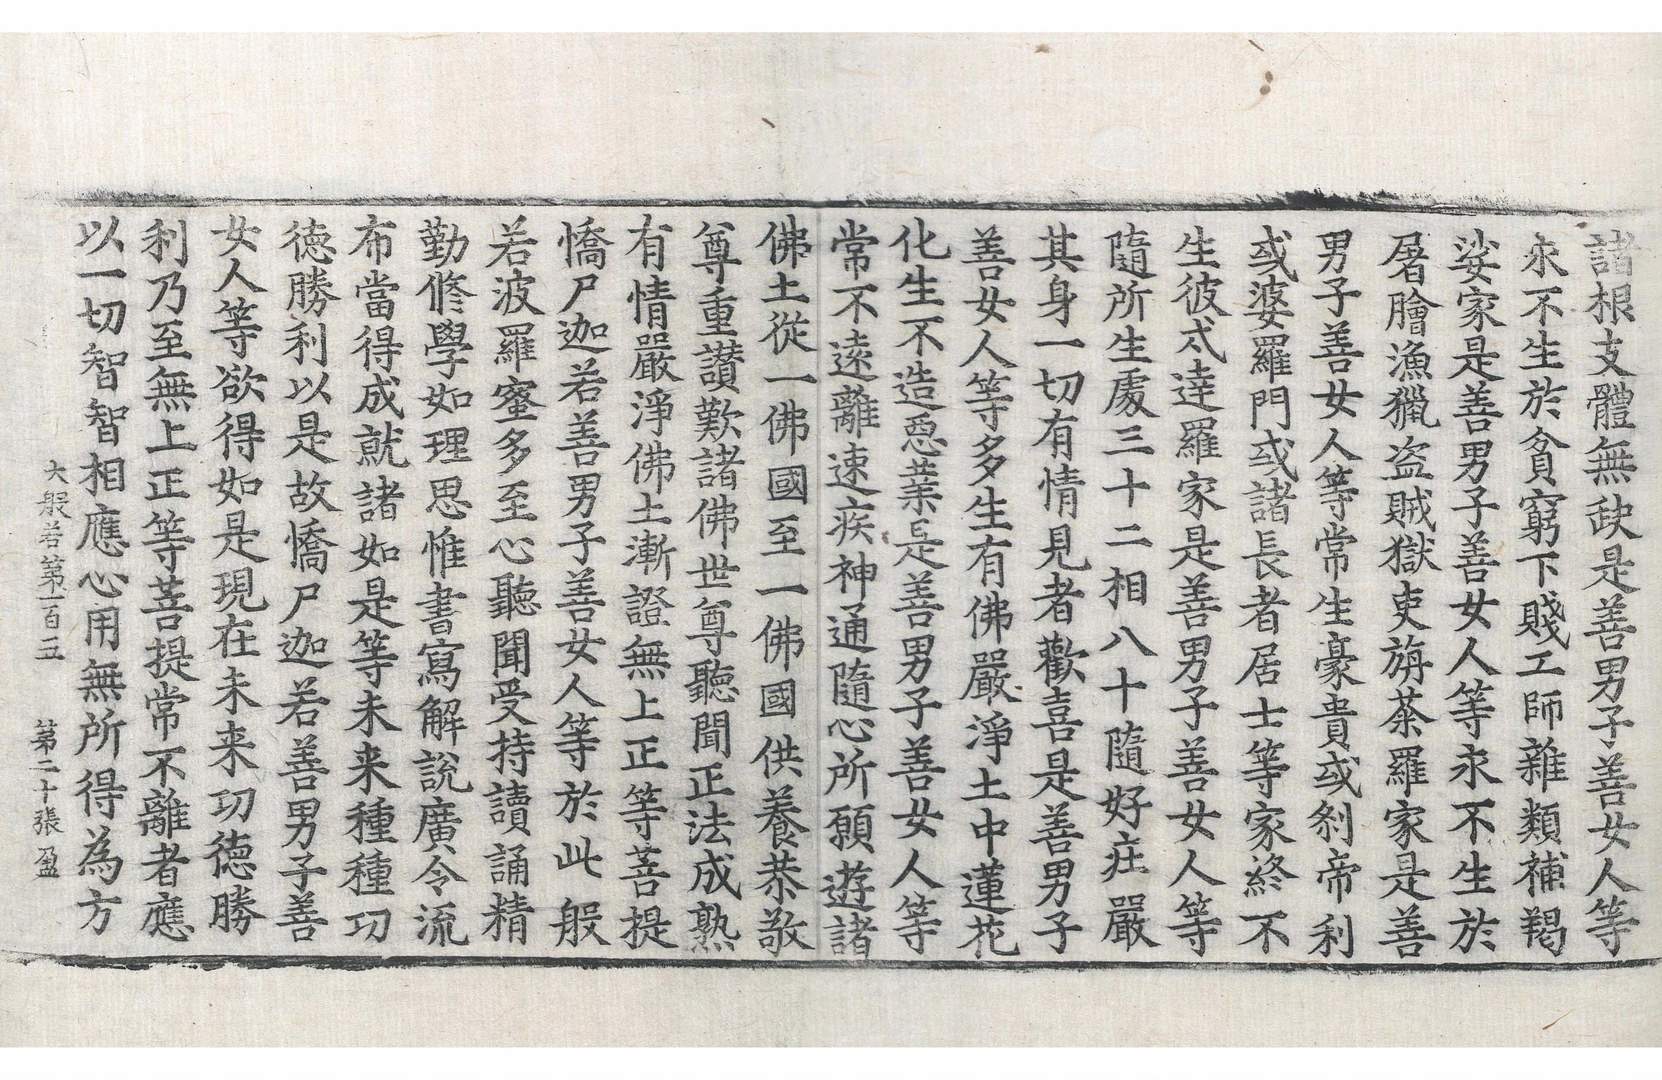 諸根支體無缺是善男子善女人等
永不生於貧窮下賤工師雜類補羯
娑家是善男子善女人等永不生於
屠膾漁獵盗賊獄吏旃荼羅家是善
男子善女人等常生豪貴或刹帝利
或婆羅門或諸長者居士等家終不
生彼弍達羅家是善男子善女人等
隨所生處三十二相八十隨好庄嚴
其身一切有情見者歡喜是善男子
善女人等多生有佛嚴淨土中蓮花
化生不造惡業是善男子善女人等
常不遠離速疾神通隨心所願遊諸
佛土從一佛國至一佛國供養恭敬
尊重讃歎諸佛世尊聽聞正法成熟
有情嚴淨佛土漸證無上正等菩提
憍尸迦若善男子善女人等於此般
若波羅蜜多至心聽聞受持讀誦精
勤修學如理思惟書寫解說廣令流
布當得成就諸如是等未来種種功
德勝利以是故憍尸迦若善男子善
女人等欲得如是現在未来功德勝
利乃至無上正等菩提常不離者應
以一切智智相應心用無所得為方
大般若第一百五 第二十張 盈